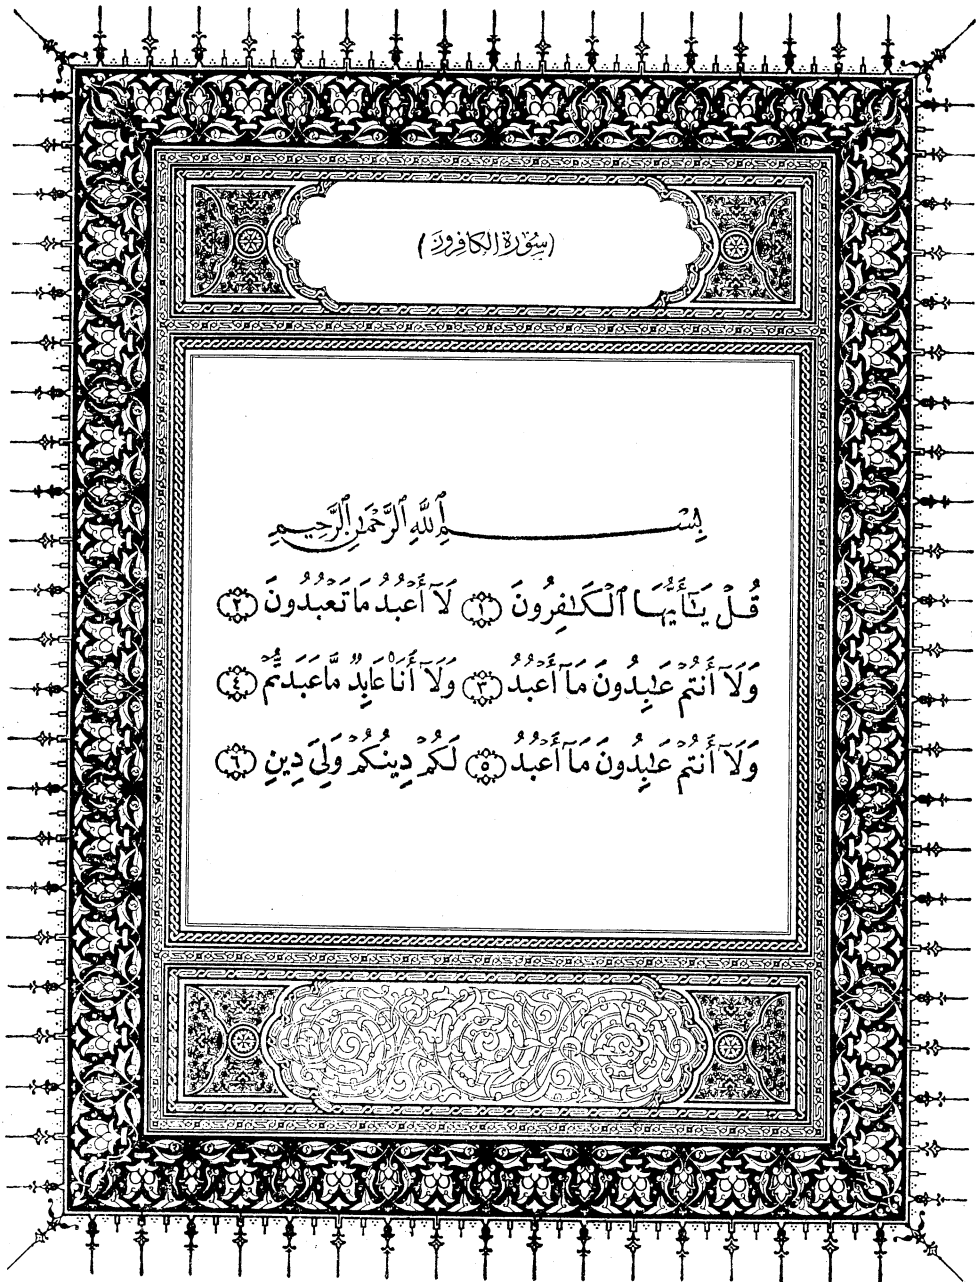 (سُورَة الكافِرُونَ)
بِسْمِ ٱللَّهِ ٱلرَّحْمَٰنِ ٱلرَّحِيمِ
قُلْ يَٰٓأَيُّهَا ٱلْكَٰفِرُونَ ﴿١﴾ لَآ أَعْبُدُ مَا تَعْبُدُونَ ﴿٢﴾
وَلَآ أَنتُمْ عَٰبِدُونَ مَآ أَعْبُدُ ﴿٣﴾ وَلَآ أَنَا۠ عَابِدٌ مَّا عَبَدتُّمْ ﴿٤﴾
وَلَآ أَنتُمْ عَٰبِدُونَ مَآ أَعْبُدُ ﴿٥﴾ لَكُمْ دِينُكُمْ وَلِيَ دِينِ ﴿٦﴾